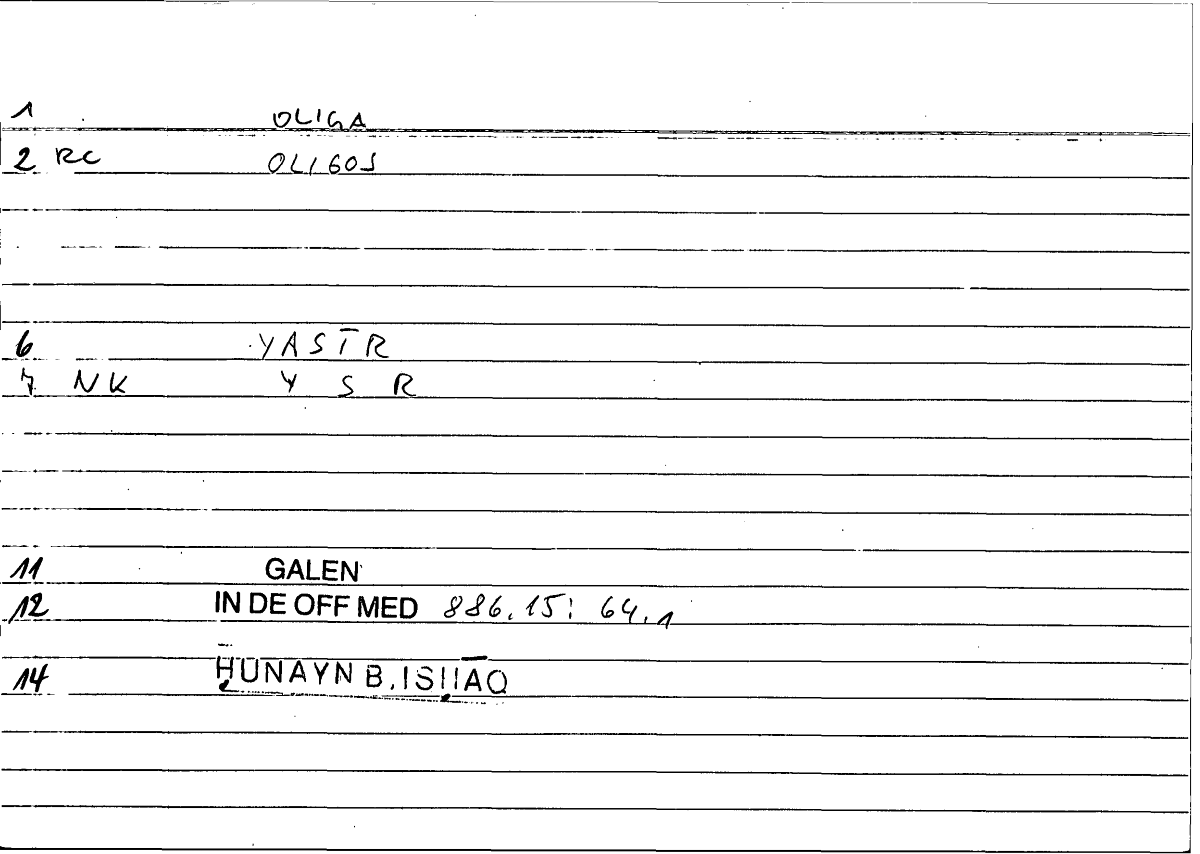 1 OLIGA
2 RC OLIGOS
6 YASĪR
7 NK Y S R
11 GALEN
12 IN DE OFF MED 886,15: 64,1
14 ḤUNAYN B. ISḤĀQ